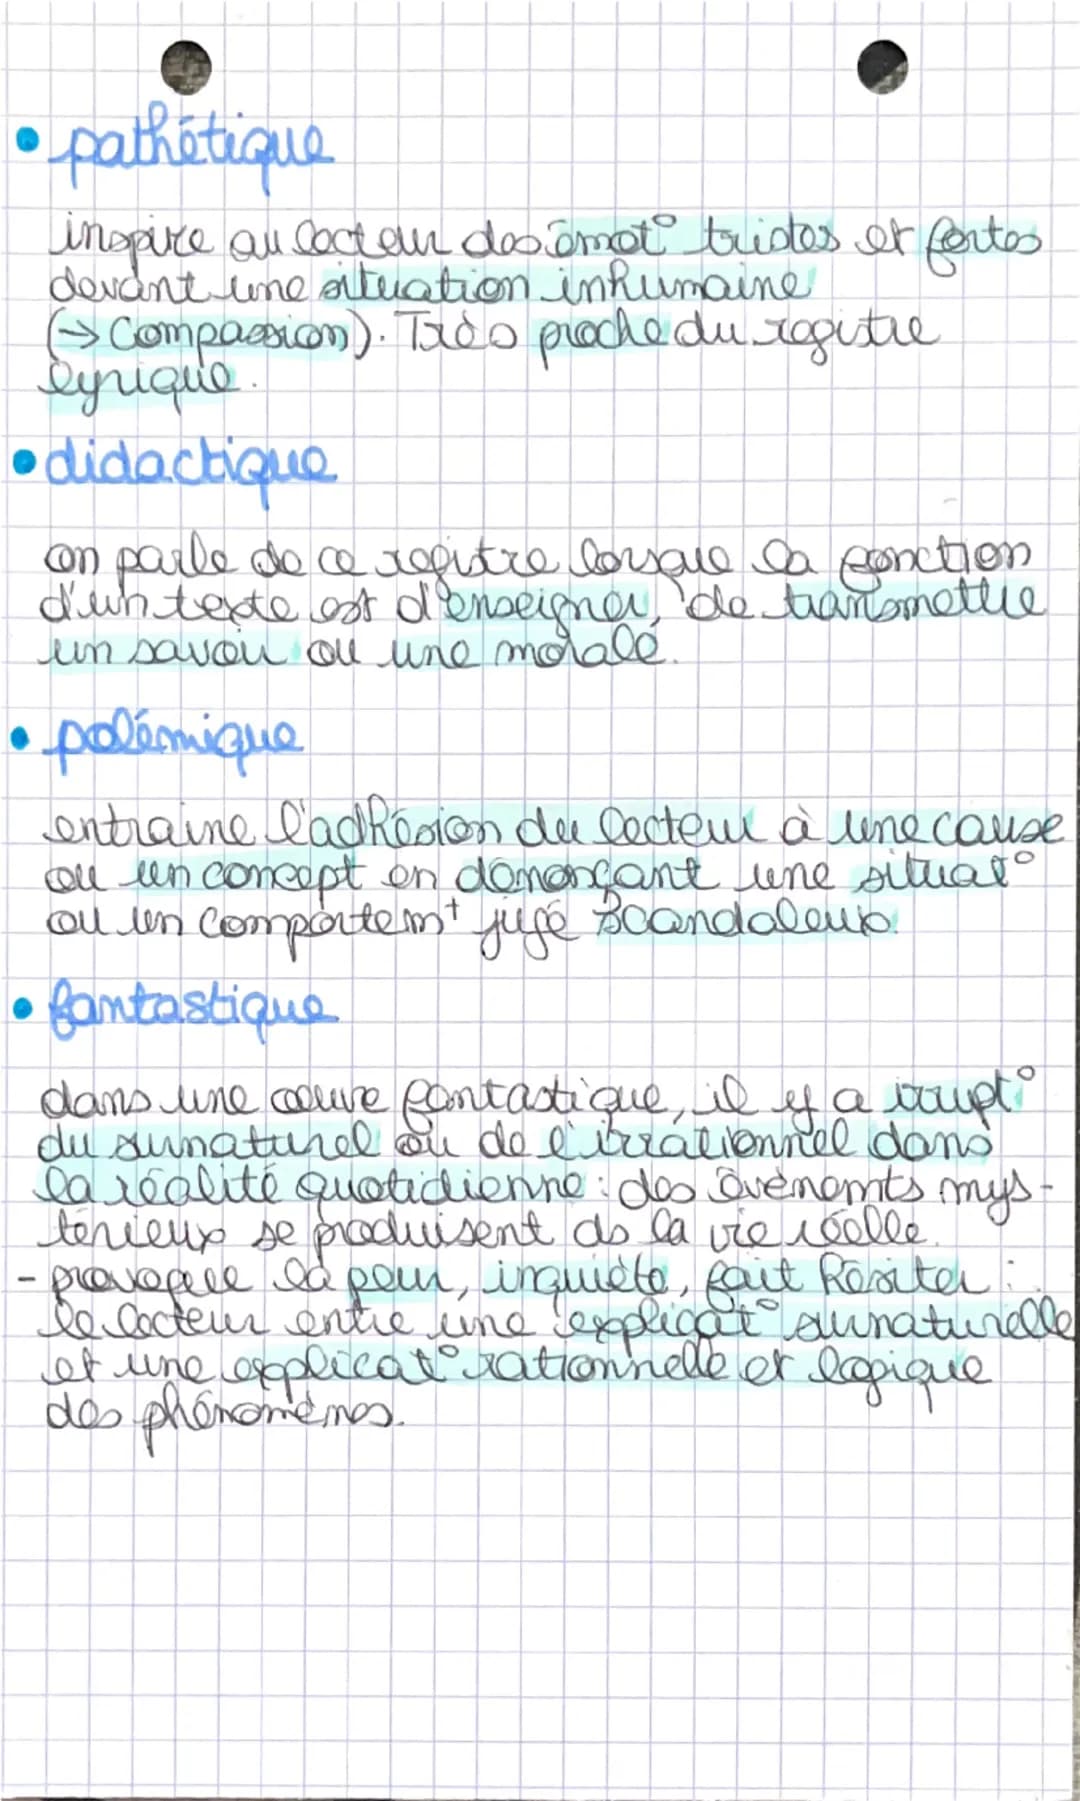 • pathétique
inspire au lecteur des émot° tristes et fortes
devant une situation inhumaine
(→ Compassion). Très proche du registre
lyrique.
• didactique
on parle de ce registre lorsque la fonction
d'un texte est d'enseigner, de transmettre
un savoir ou une morale.
• polémique
entraine l'adhésion du lecteur à une cause
ou un concept en dénonçant une situat°
ou un comportemt jugé scandaleux.
• fantastique
dans une œuvre fantastique, il y a irrupt°
du surnaturel ou de l'irrationnel dans
la réalité quotidienne : des évènemts mys-
térieux se produisent ds la vie réelle.
- provoque la peur, inquiète, fait hésiter :
le lecteur entre une explicat° surnaturelle
et une explicat° rationnelle et logique
des phénomènes.